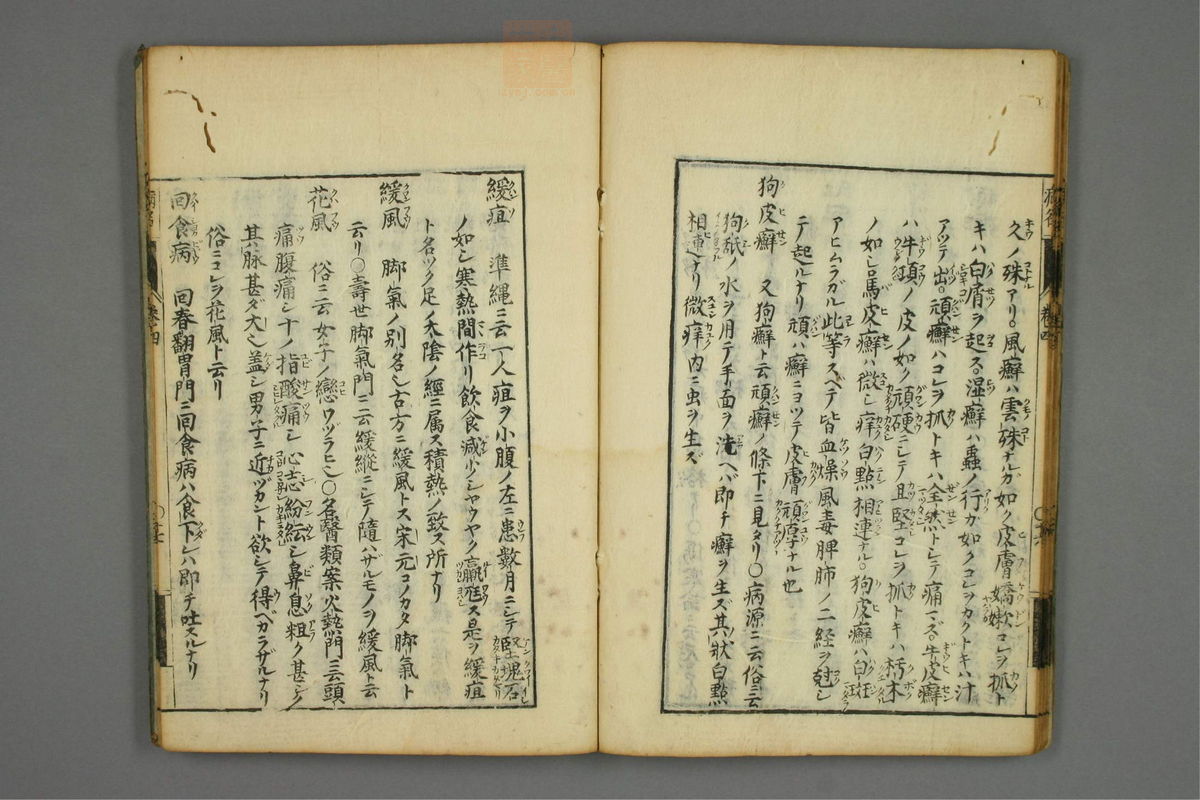 久ノ殊アリ。風癬ハ雲殊ナルガ如ク皮膚嬌嫰コレヲ抓ト
キハ白屑ヲ起ス。湿癬ハ蟲ノ行ガ如クコレヲカクトキハ汁
アツテ出。頑癬ハコレヲ抓トキハ全然トシテ痛マズ。牛皮癬
ハ牛頂ノ皮ノ如ク頑硬ニシテ且堅コレヲ抓トキハ朽木
ノ如シ馬皮癬ハ微シ痒白點相連ナル。狗皮癬ハ白
アヒムラガル此等スベテ皆血燥風毒脾肺ノ二経ヲ尅シ
テ起ルナリ頑ハ癬ニヨツテ皮膚頑厚ナル也
狗皮癬 又狗癬ト云頑癬ノ條下ニ見タリ〇病源ニ云俗ニ云
狗舐ノ水ヲ用テ手面ヲ洗ヘバ即チ癬ヲ生ズ其状白點
相連ナリ微痒内ニ虫ヲ生ズ
緩疽 準縄ニ云一人疽ヲ小腹ノ左ニ患數月ニシテ堅塊石
ノ如シ寒熱間作リ飲食減少シヤウヤク羸尩ス是ヲ緩疽
ト名ヅク足ノ太陰ノ經ニ属ス積熱ノ致ス所ナリ
緩風 脚氣ノ別名シ古方ニ緩風トス宋元コノカタ脚氣ト
云リ〇壽世脚氣門ニ云緩縱ニシテ隨ハザルモノヲ緩風ト云
花風 俗ニ云女子ノ戀ワヅラヒ〇名醫類案火熱門ニ云頭
痛腹痛シ十ノ指酸痛シ心志紛紜シ鼻息粗ク甚シク
其脉甚ダ大シ蓋シ男子ニ近ヅカント欲シテ得ベカラザルナリ
俗ニコレヲ花風ト云リ
回食病 回春翻胃門ニ回食病ハ食下レハ即チ吐スルナリ